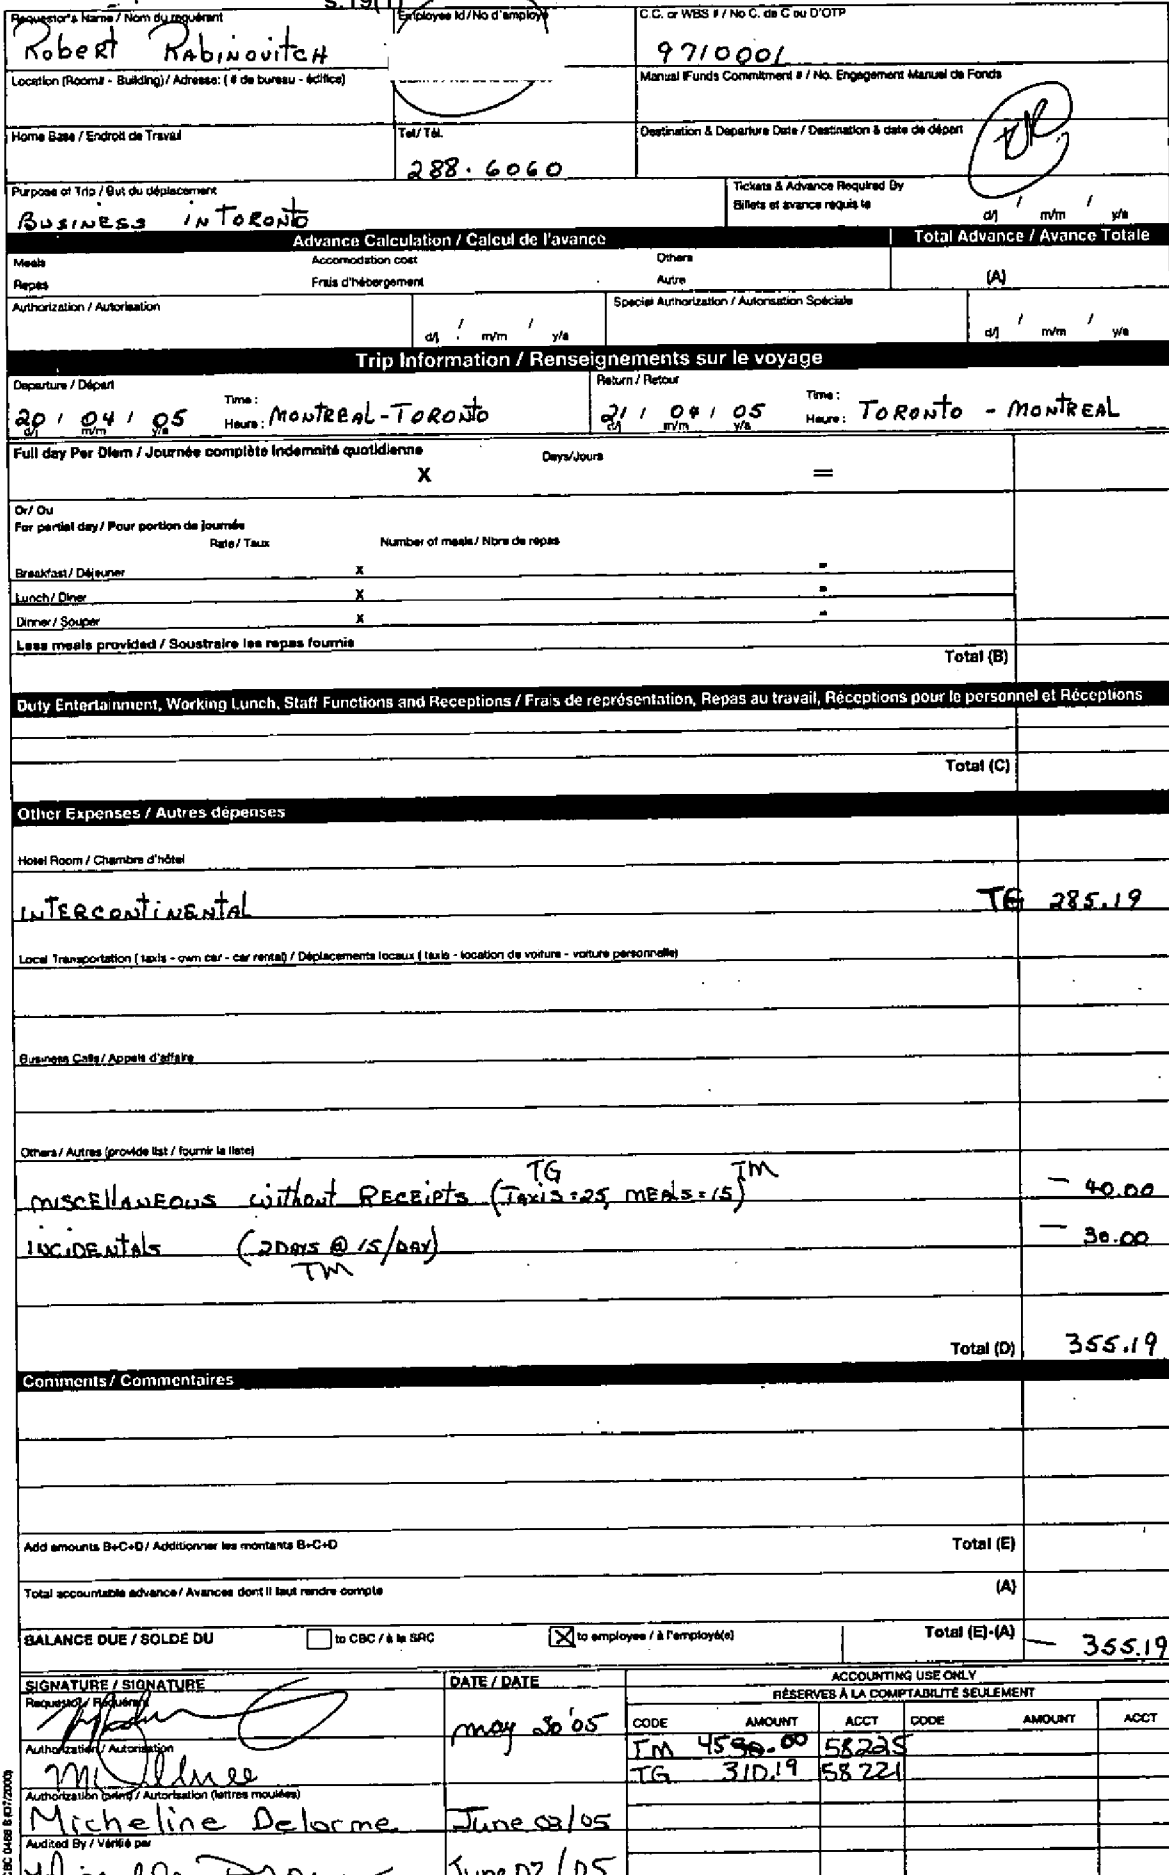 S.19(1)
Requestor's Name / Nom du requérant
Employee Id / No d'employé
C.C. or WBS # / No C. de C ou D'OTP
Robert Rabinovitch
9710001
Location (Rooms - Building) / Adresse: ( # de bureau - édifice)
Manual Funds Commitment # / No. Engagement Manuel de Fonds
Home Base / Endroit de Travail
Tel / Tél.
Destination & Departure Date / Destination & date de départ
288.6060
Purpose of Trip / But du déplacement
Tickets & Advance Required By
Billets et avance requis le
BUSINESS IN TORONTO
d/j / m/m / y/a
Advance Calculation / Calcul de l'avance
Total Advance / Avance Totale
Meals Accomodation cost Others
Repas Frais d'hébergement Autre (A)
Authorization / Autorisation
Special Authorization / Autorisation Spéciale
d/j / m/m / y/a
d/j / m/m / y/a
Trip Information / Renseignements sur le voyage
Departure / Départ
Return / Retour
20 / 04 / 05 Time : Heure : MONTREAL - TORONTO
21 / 04 / 05 Time : Heure : TORONTO - MONTREAL
d/j m/m y/a
d/j m/m y/a
Full day Per Diem / Journée complète Indemnité quotidienne Days/Jours
X =
Or/ Ou
For partial day / Pour portion de journée
Rate / Taux Number of meals / Nbre de repas
Breakfast / Déjeuner x =
Lunch / Diner x =
Dinner / Souper x =
Less meals provided / Soustraire les repas fournis
Total (B)
Duty Entertainment, Working Lunch, Staff Functions and Receptions / Frais de représentation, Repas au travail, Réceptions pour le personnel et Réceptions
Total (C)
Other Expenses / Autres dépenses
Hotel Room / Chambre d'hôtel
INTERCONTINENTAL TG 285.19
Local Transportation ( taxis - own car - car rental) / Déplacements locaux ( taxis - location de voiture - voiture personnelle)
Business Calls / Appels d'affaire
Others / Autres (provide list / fournir la liste)
TG TM
MISCELLANEOUS without RECEIPTS (TAXIS = 25, MEALS = 15) - 40.00
INCIDENTALS (2 DAYS @ 15/DAY) - 30.00
TM
Total (D) 355.19
Comments / Commentaires
Add amounts B+C+D / Additionner les montants B+C+D Total (E)
Total accountable advance / Avances dont il faut rendre compte (A)
BALANCE DUE / SOLDE DU to CBC / à la SRC X to employee / à l'employé(e) Total (E)-(A) - 355.19
SIGNATURE / SIGNATURE DATE / DATE ACCOUNTING USE ONLY
RÉSERVES À LA COMPTABILITÉ SEULEMENT
Requestor / Requérant
May 30'05
CODE AMOUNT ACCT CODE AMOUNT ACCT
TM 45.00 58225
Authorization / Autorisation
TG 310.19 58221
Authorization (print) / Autorisation (lettres moulées)
Micheline Delorme June 02/05
Audited By / Vérifié par
June 02/05